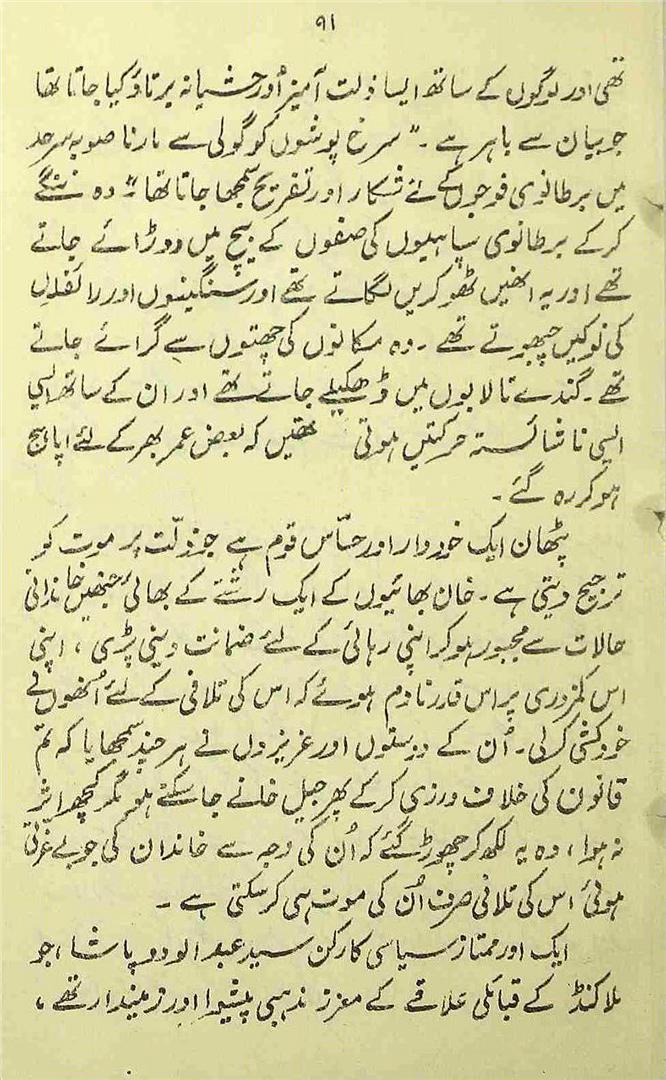 ۹۱
تھی اور لوگوں کے ساتھ ایسا ذلت آمیز اور حشیانہ برتاؤ کیا جاتا تھا
جو بیان سے باہر ہے ۔ " سرخ پوشوں کو گولی سے مارنا صوبہ سرحد
میں برطانوی فوجوں کے لئے شکار اور تفریح سمجھا جاتا تھا " وہ ننگے
کرکے برطانوی سپاہیوں کی صفوں کے بیچ میں دوڑائے جاتے
تھے اور یہ انھیں ٹھوکریں لگاتے تھے اور سنگینوں اور رائفلوں
کی نوکیں چبھوتے تھے ۔ وہ مکانوں کی چھتوں سے گرائے جاتے
تھے ۔ گندے تالابوں میں ڈھکیلے جاتے تھے اور ان کے ساتھ ایسی
ایسی ناشائستہ حرکتیں ہوتی تھیں کہ بعض عمر بھر کے لئے اپاہج
ہو کر رہ گئے ۔
پٹھان ایک خوددار اور حسّاس قوم ہے جو ذلّت پر موت کو
ترجیح دیتی ہے ۔ خان بھائیوں کے ایک رشتے کے بھائی جنھیں خاندانی
حالات سے مجبور ہو کر اپنی رہائی کے لئے ضمانت دینی پڑی ، اپنی
اس کمزوری پر اس قدر نادم ہوئے کہ اس کی تلافی کے لئے اُنھوں نے
خودکشی کرلی ۔ اُن کے دوستوں اور عزیزوں نے ہر چند سمجھایا کہ تم
قانون کی خلاف ورزی کرکے پھر جیل خانے جا سکتے ہو مگر کچھ اثر
نہ ہوا ، وہ یہ لکھ کر چھوڑ گئے کہ اُن کی وجہ سے خاندان کی جو بے عزتی
ہوئی اس کی تلافی صرف اُن کی موت ہی کر سکتی ہے ۔
ایک اور ممتاز سیاسی کارکن سید عبدالودود پاشا ، جو
ملاکنڈ کے قبائلی علاقے کے معزز مذہبی پیشوا اور زمیندار تھے ،